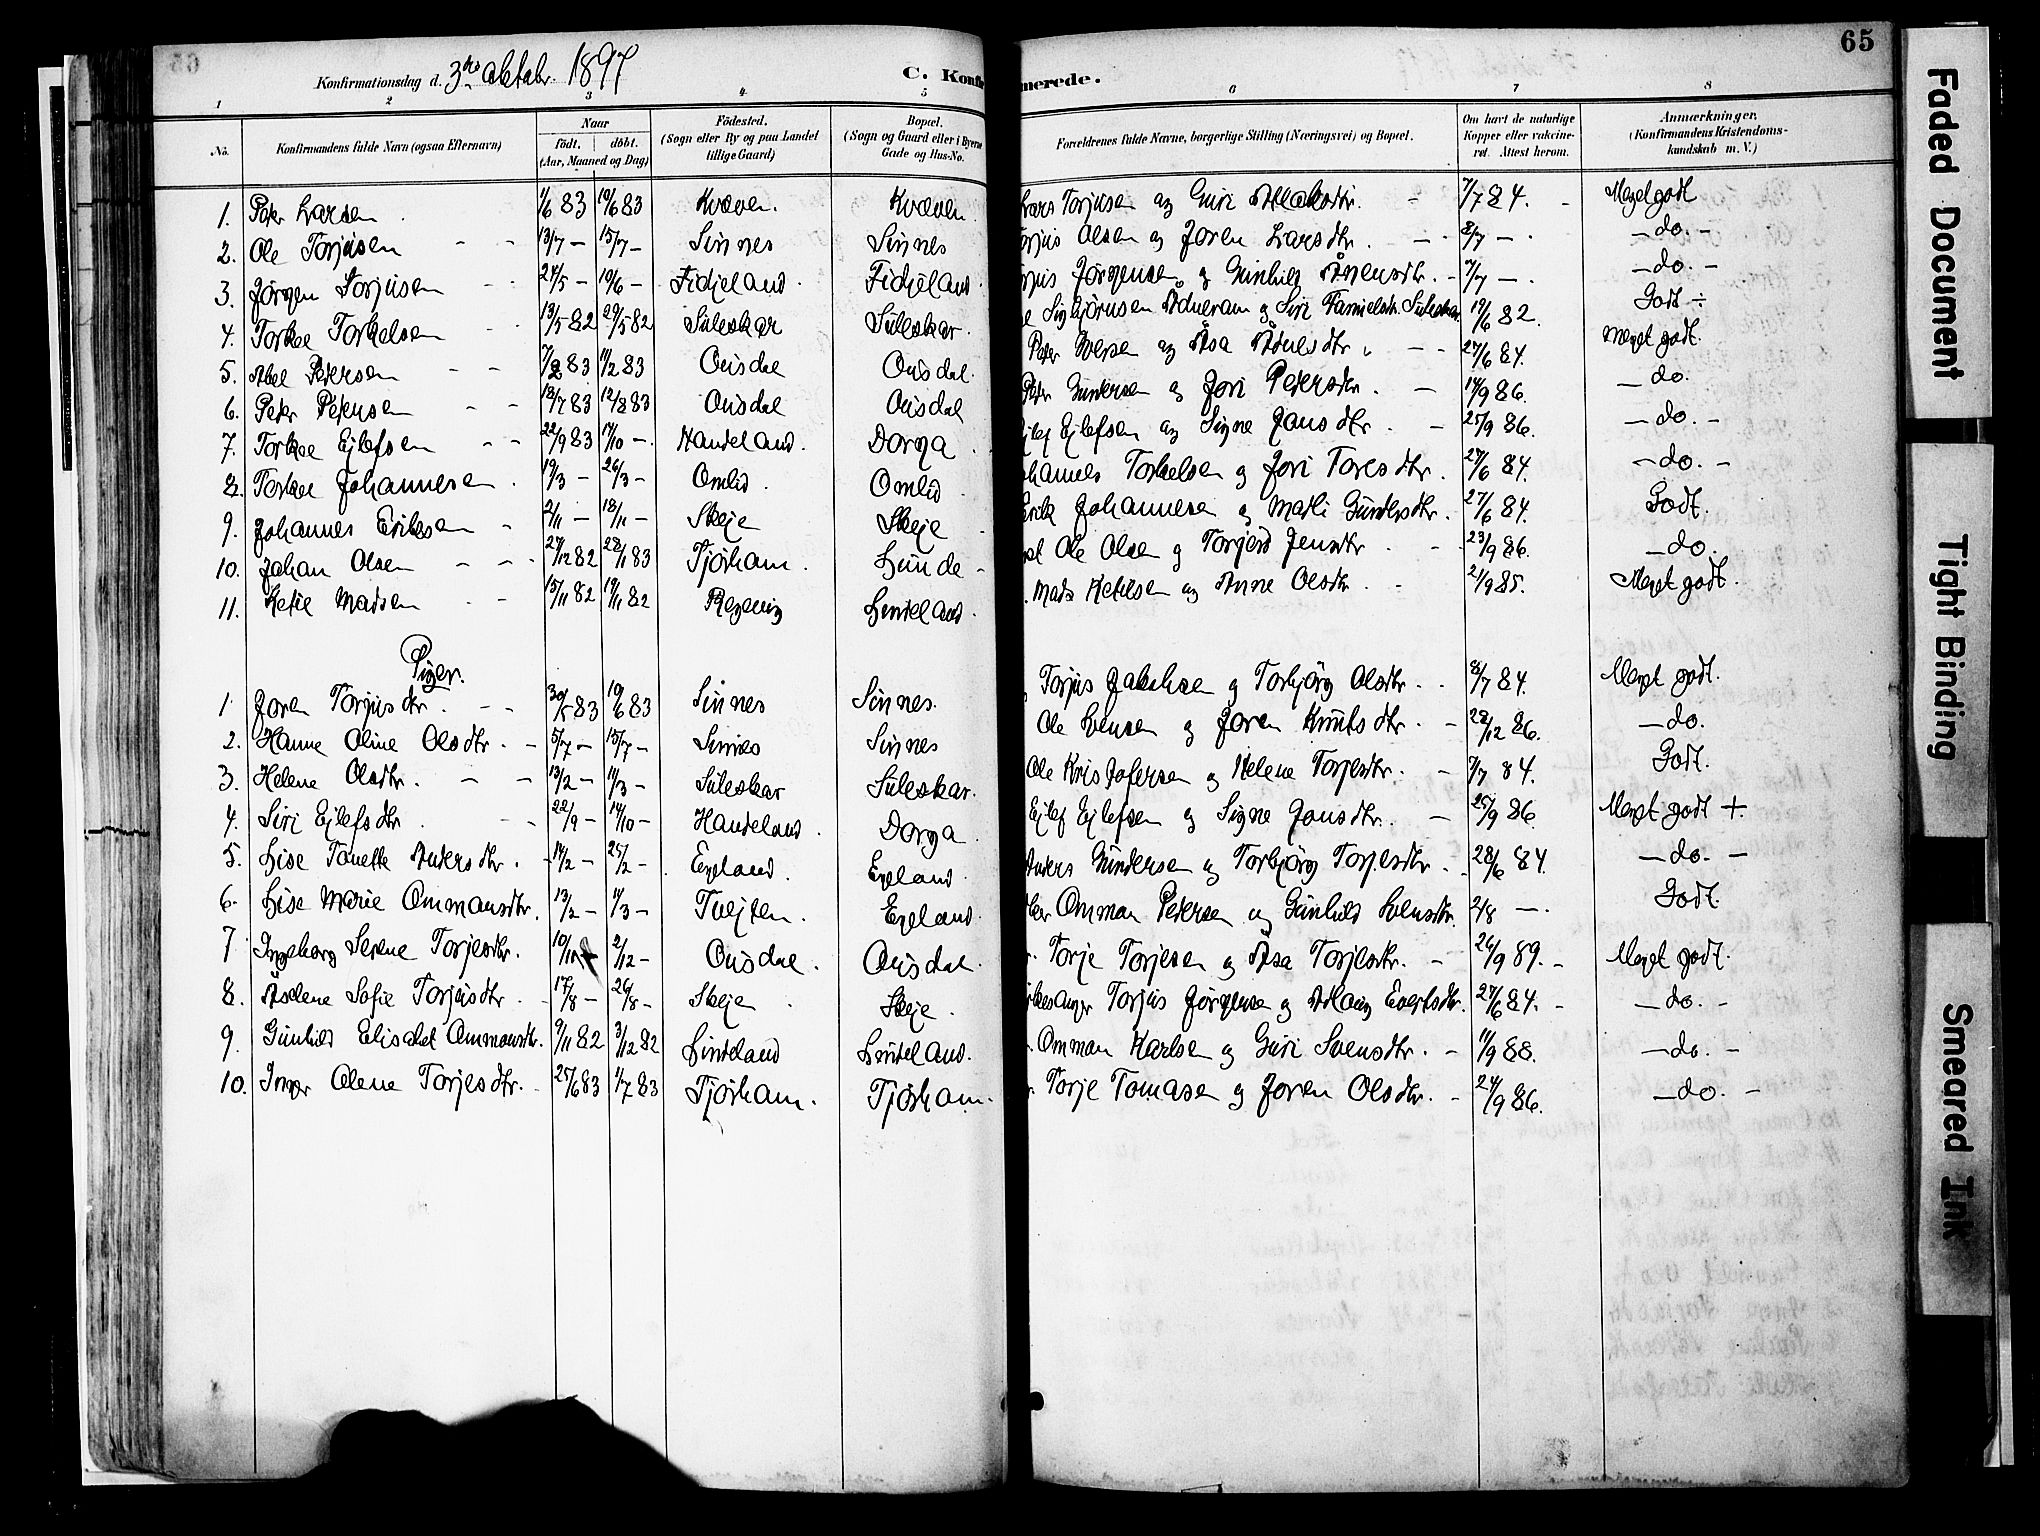 65
Konfirmationsdag d. 3die oktobr. 1897
C. Konfirmerede.
1 2 3 4 5 6 7 8
No. Konfirmandens fulde Navn (ogsaa Efternavn) Naar født. døbt. (Aar, Maaned og Dag) Fødested. (Sogn eller By og paa Landet tillige Gaard) Bopæl. (Sogn og Gaard eller i Byerne Gade og Hus-No. Forældrenes fulde Navne, borgerlige Stilling (Næringsvei) og Bopæl. Om havt de naturlige Kopper eller vakcineret. Attest herom. Anmærkninger. (Konfirmandens Kristendomskundskab m. V.)
1. Peter Larsen 1/6 83 10/6 83 Kvæven. Kvæven Lars Torjusen og Guri Aslaksdtr. 7/7 84. Meget godt
2. Ole Torjusen 13/7 - 15/7 - Sinnes Sinnes Olsen og Joren Larsdtr. 8/7 - do. -
3. Jørgen Torjusen 24/5 - 10/6 - Fidjeland Fidjeland Jørgensen og Gunhild Ånensdtr. 7/7 - do. -
4. Torkel Torkelsen 13/5 82 29/5 82 Suleskar Suleskar Siri Suleskar 19/6 82. Godt ÷
5. Abel Petersen 7/2 83 11/2 83 Ousdal Ousdal Peter Iversen og Åsa Ådnesdtr. 27/6 84. Meget godt.
6. Peter Petersen 12/7 83 12/8 83 Ousdal Ousdal Peter Gundersen og Jori Petersdtr. 14/9 86. do.
7. Torkel Ejlefsen 22/9 83 14/10 - Haudeland. Dorga Ejlef Ejlefsen og Signe Jonsdtr. 25/9 86. do. -
8. Torkel Johannesen 19/3 - 26/3 - Omlid Omlid Johannes Torkelsen og Jori Toresdtr. 27/6 84. do. -
9. Johannes Eriksen 2/11 - 18/11 - Skeje Skeje Erik Johannesen og Malli Gundersdtr. 27/6 84. Godt.
10. Johan Olsen 27/12 82 28/1 83 Tjørham. Lunde Ole Olsen og Torjerd Jensdtr 23/9 86. do.
11. Ketil Madsen 15/11 82 19/11 82 Regevig Lindeland. Mads Ketilsen og Anne Olsdtr. 21/9 85. Meget godt.
Piger.
1. Joren Torjusdtr. 30/5 83 10/6 83 Sinnes Sinnes. Torjus Jakobsen og Torbjørg Olsdtr. 8/7 84. Meget godt.
2. Hanne Oline Olsdtr. 5/7 - 15/7 - Sinnes Sinnes Ole Svensen og Joren Knutsdtr. 28/12 86. do.
3. Helene Olsdtr. 13/2 - 11/3 - Suleskar Suleskar. Ole Kristofersen og Helene Torjesdtr. 7/7 84. Godt.
4. Siri Ejlefsdtr. 22/9 - 14/10 - Haudeland. Dorga Ejlef Ejlefsen og Signe Jonsdtr. 25/9 86. Meget godt +.
5. Lise Tonette Andersdtr. 14/2 - 25/2 - Egeland. Egeland Anders Gundersen og Torbjørg Torjesdtr. 28/6 84. do. -
6. Lise Marie Ommunsdtr. 13/2 - 11/3 - Tvejten. Egeland. Ommon Petersen og Gunhild Svensdtr. 2/8 - Godt.
7 Ingeborg Serene Torjesdtr. 10/11 2/12 - Ousdal. Ousdal. Torje Torjesen og Åsa Torjesdtr. 26/9 89. Meget godt.
8. Åselene Sofie Torjusdtr. 17/8 - 26/8 - Skeje Skeje. Torjus Jørgensen og Evertsdtr. 27/6 84. do. -
9. Gunhild Elisabet Ommonsdtr. 9/11 82 3/12 82 Lindeland Lindeland. Ommon Karlsen og Guri Svensdtr. 11/9 88. do. -
10. Inger Olene Torjesdtr. 25/6 83 1/7 83 Tjørham. Tjørham. Torje Tomasen og Joren Olsdtr. 24/9 86. do. -
Faded Document
Tight Binding
Smeared Ink